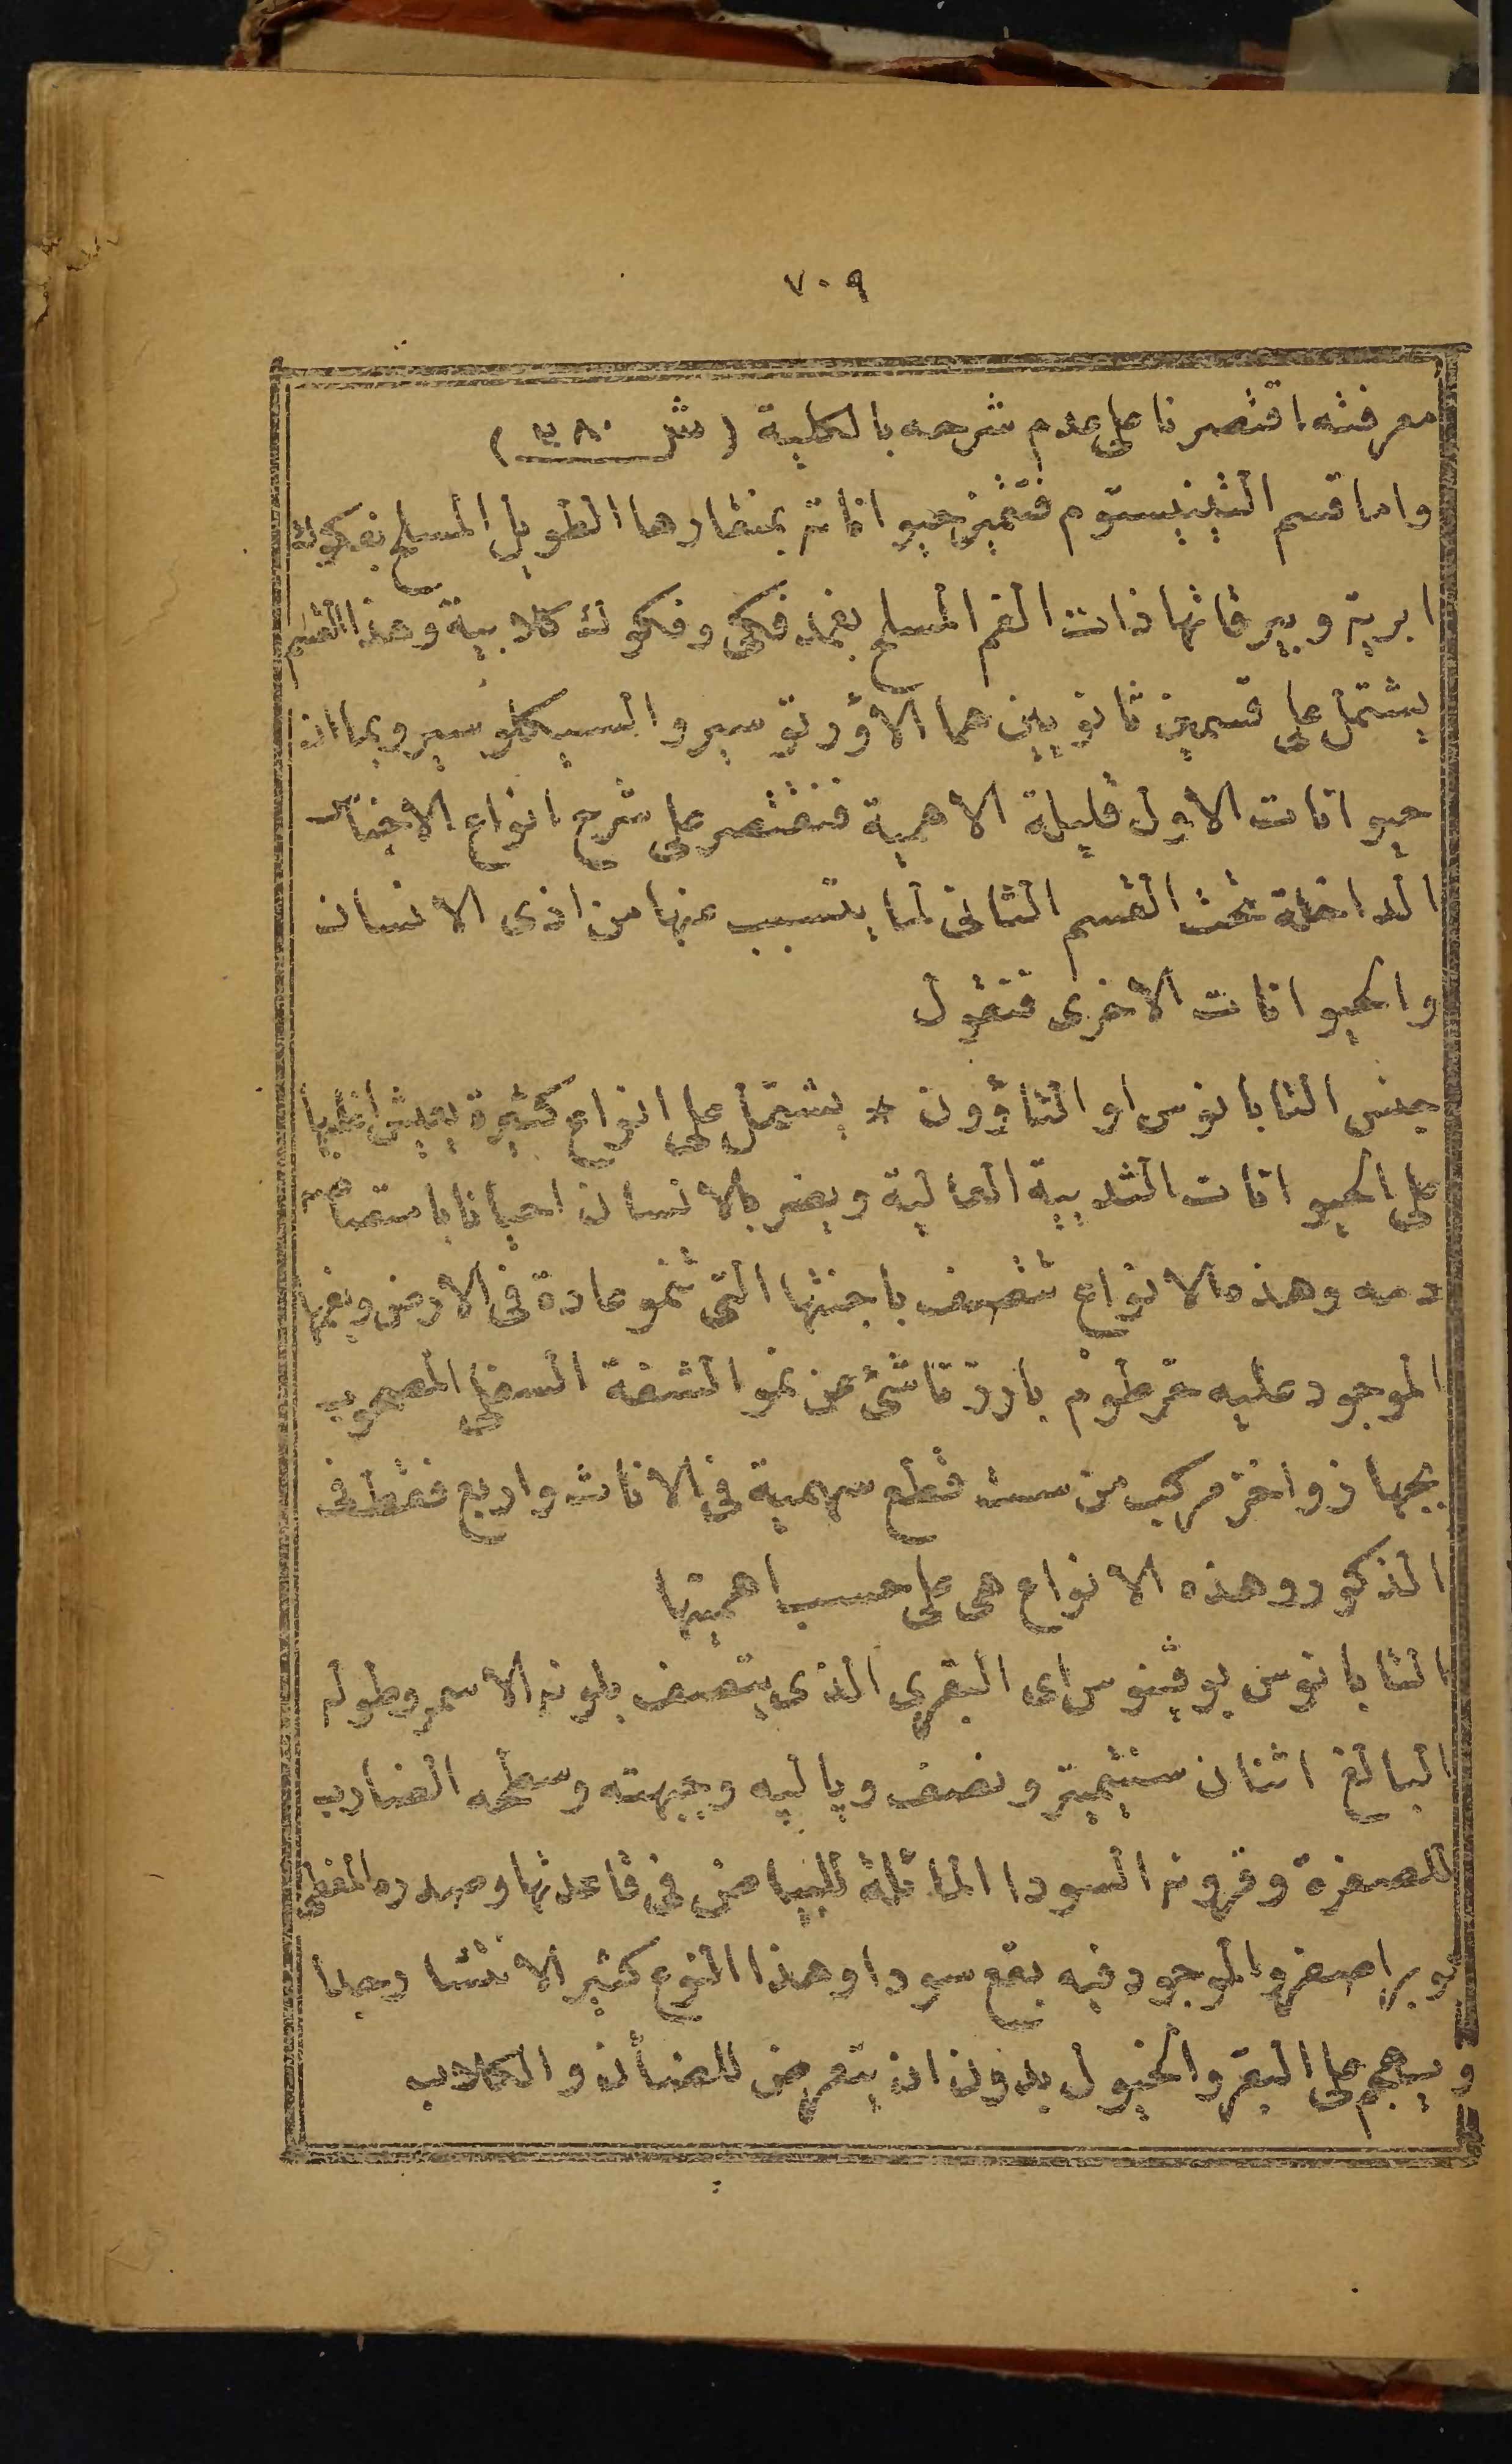 ٧٠٩
معرفته اقتصرنا على عدم شرحه بالكلية (ش ٣٨٠)
واما قسم التينيستوم فتتميز حيواناته بمنقارها الطويل المسلح بفكوك
ابرية وبيرقاتها ذات الفم المسلح بغمد فكى وفكوك كلابية وهذا القسم
يشتمل على قسمين ثانويين هما الاؤرتوسير والسيكلوسير وبما ان
حيوانات الاول قليلة الاهمية فنقتصر على شرح انواع الاجناس
الداخلة تحت القسم الثانى لما يتسبب عنها من اذى الانسان
والحيوانات الاخرى فنقول
جنس التابانوس او التاؤون * يشتمل على انواع كثيرة يعيش اغلبها
على الحيوانات الثديية العالية ويضر بالانسان احيانا بامتصاص
دمه وهذه الانواع تتصف باجنتها التى تنمو عادة فى الارض وبفمها
الموجود عليه خرطوم بارز ناشئ عن نمو الشفة السفلى المصحوب
بجهاز واخز مركب من ست قطع سهمية فى الاناث واربع فقط فى
الذكور وهذه الانواع هى على حسب اهميتها
التابانوس بوڤينوس اى البقرى الذى يتصف بلونه الاسمر وطوله
البالغ اثنان سنتيميتر ونصف وپالپه وجبهته وسطحه الضارب
للصفرة وقرونه السودا المائلة للبياض فى قاعدتها وصدره المغطى
بوبر اصفر والموجود فيه بقع سودا وهذا النوع كثير الانتشار جدا
ويهجم على البقر والخيول بدون ان يتعرض للضأن والكلاب